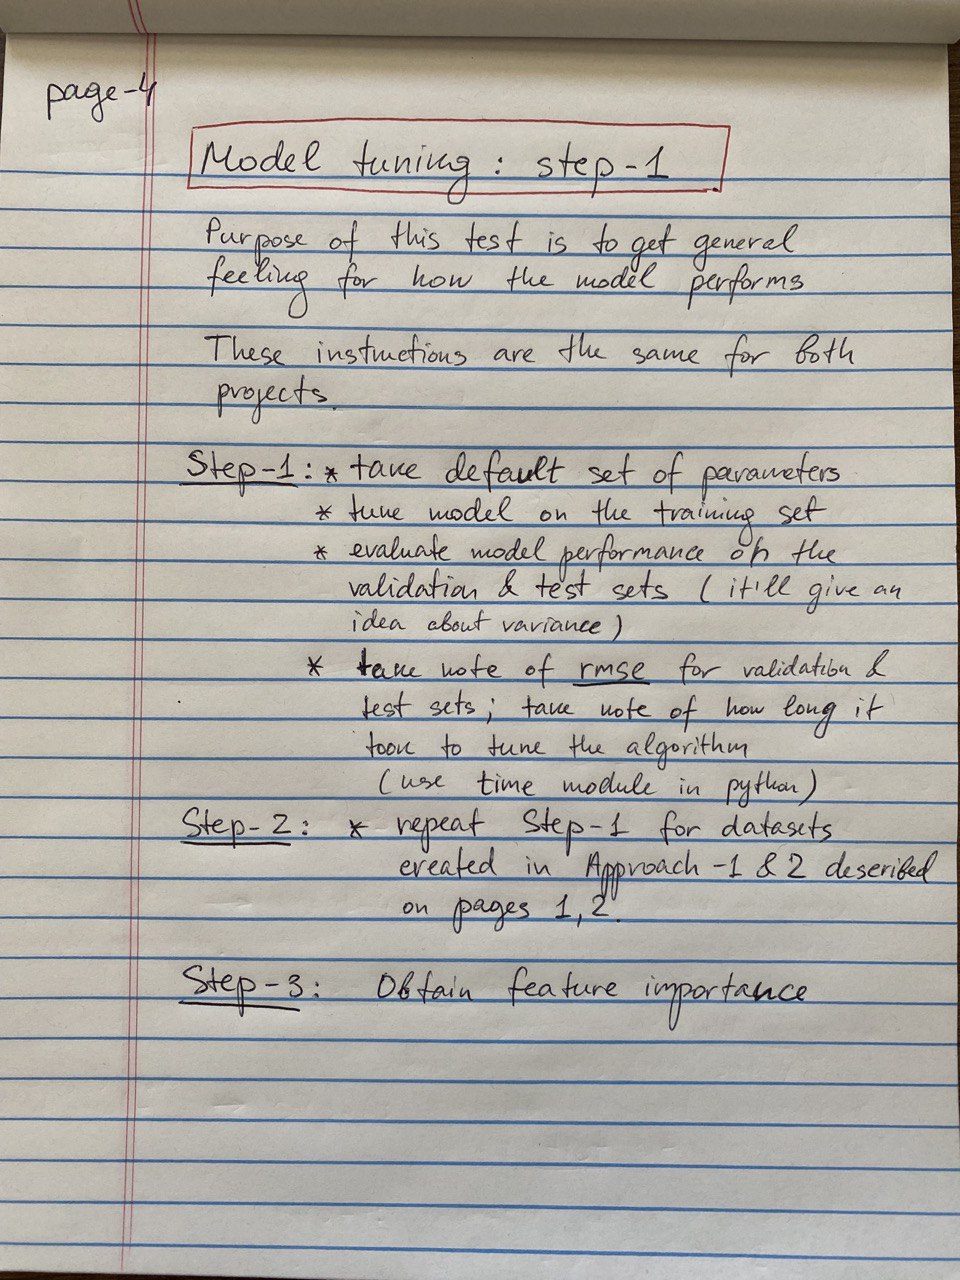 page-4
Model tuning: step-1
Purpose of this test is to get general
feeling for how the model performs
These instructions are the same for both
projects.
Step-1: * take default set of parameters
* tune model on the training set
* evaluate model performance on the
validation & test sets (it'll give an
idea about variance)
* take note of rmse for validation &
test sets; take note of how long it
took to tune the algorithm
(use time module in python)
Step-2: * repeat Step-1 for datasets
created in Approach-1 & 2 described
on pages 1,2.
Step-3: Obtain feature importance